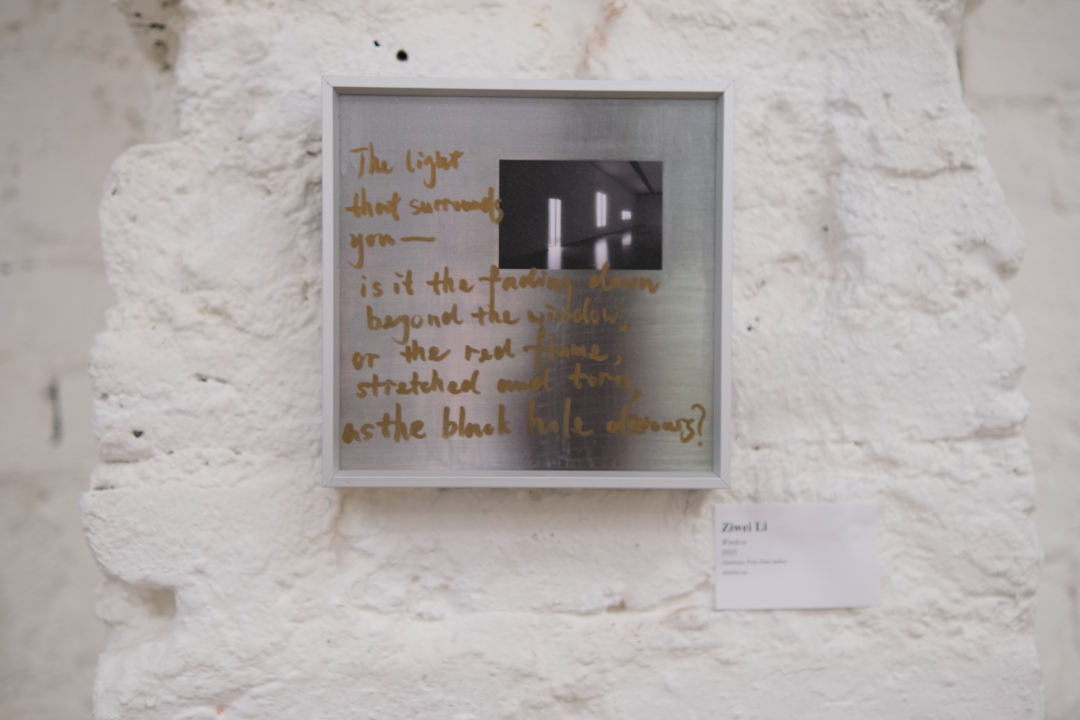 The light
that surrounds
you —
is it the fading dawn
beyond the window,
or the red flame,
stretched and torn,
as the black hole devours?
Ziwei Li
Window
2023